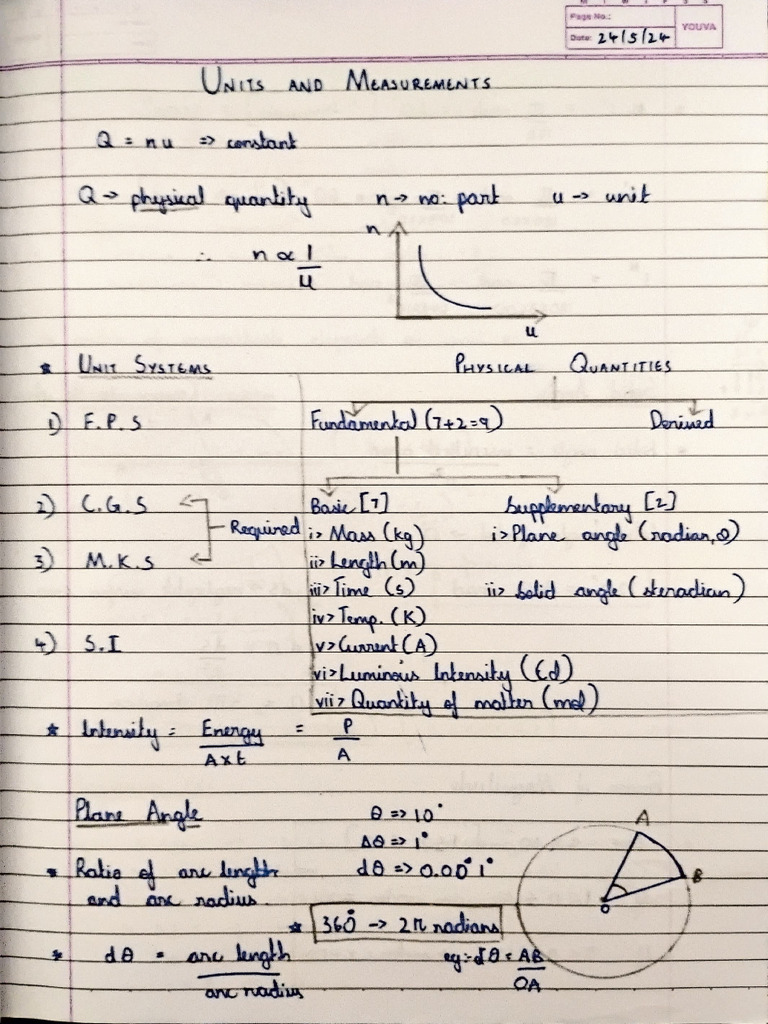 Page No.:
Date: 24/5/24
YOUVA
UNITS AND MEASUREMENTS
Q = nu => constant
Q → physical quantity n → no: part u → unit
∴ n ∝ 1/u
n
u
* UNIT SYSTEMS
PHYSICAL QUANTITIES
1) F.P.S
Fundamental (7+2=9) Derived
2) C.G.S
Required
3) M.K.S
4) S.I
Basic [7]
i> Mass (kg)
ii> Length (m)
iii> Time (s)
iv> Temp. (K)
v> Current (A)
vi> Luminous Intensity (Cd)
vii> Quantity of matter (mol)
Supplementary [2]
i> Plane angle (radian, θ)
ii> Solid angle (steradian)
* Intensity = Energy/A×t = P/A
Plane Angle
θ => 10°
Δθ => 1°
dθ => 0.00°1°
* Ratio of arc length
and arc radius.
* 360° → 2π radians
* dθ = arc length/arc radius
eg:- dθ = AB/OA
A
B
O